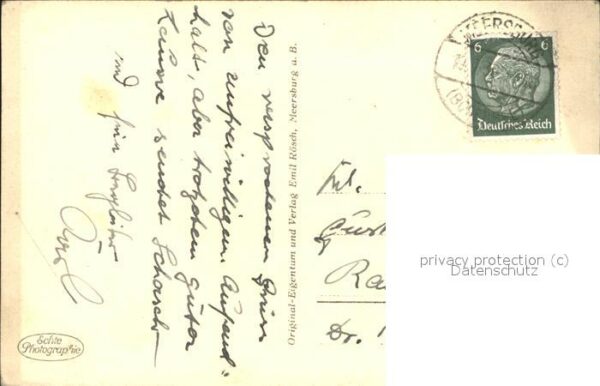 Den versprochenen Gruss
von unfreiwilligem Aufent=
halt, aber trotzdem guter
Laune sendet
und sein Begleiter
Original-Eigentum und Verlag Emil Rösch, Meersburg a. B.
Echte
Photographie
MEERSBURG
6 6
Deutsches Reich
Frl.
Dr.
privacy protection (c)
Datenschutz